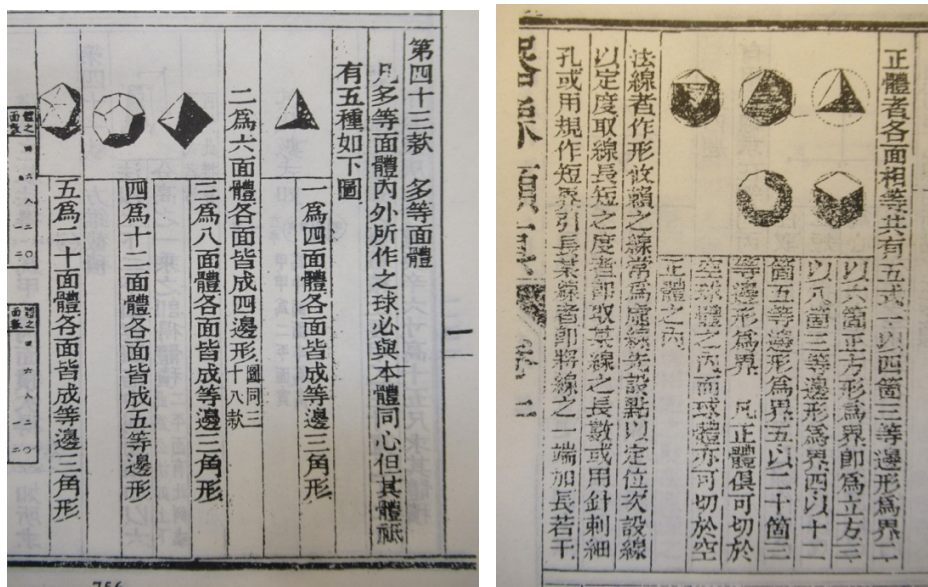 第四十三款 多等面體
凡多等面體內外所作之球必與本體同心但其體祗
有五種如下圖
一爲四面體各面皆成等邊三角形
二爲六面體各面皆成四邊形圖同三十八款
三爲八面體各面皆成等邊三角形
四爲十二面體各面皆成五等邊形
五爲二十面體各面皆成等邊三角形
體之面數 四 六 八 一二 二〇
體之面數 四 六 八 一二 二〇
756
正體者各面相等共有五式一以四箇三等邊形爲界二
以六箇正方形爲界卽爲立方三
以八箇三等邊形爲界四以十二
箇五等邊形爲界五以二十箇三
等邊形爲界 凡正體俱可切於
空球體之內而球體亦可切於空
正體之內
法線者作形攸賴之線常爲虛線先設點以定位次設線
以定度取線長短之度者卽取某線之長數或用針刺細
孔或用規作短界引長某線者卽將線之一端加長若干